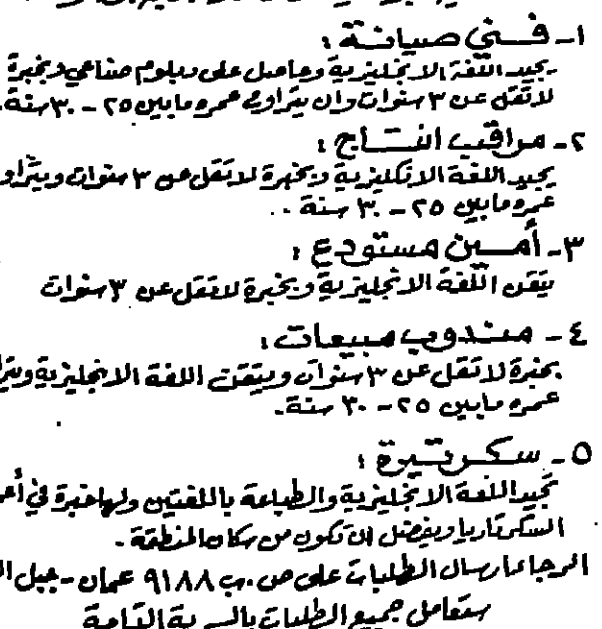 ١- فني صيانة :
يجيد اللغة الانجليزية وحاصل على دبلوم صناعي وبخبرة
لاتقل عن ٣ سنوات وان يتراوح عمره مابين ٢٥ - ٣٠ سنة.
٢- مراقب انتاج :
يجيد اللغة الانكليزية وبخبرة لاتقل عن ٣ سنوات ويتراو
عمره مابين ٢٥ - ٣٠ سنة ..
٣- أمين مستودع :
يتقن اللغة الانجليزية وبخبرة لاتقل عن ٣ سنوات
٤- مندوب مبيعات :
بخبرة لاتقل عن ٣ سنوات ويتقن اللغة الانجليزية ويترا
عمره مابين ٢٥ - ٣٠ سنة.
٥- سكرتيرة :
تجيد اللغة الانجليزية والطباعة باللغتين ولها خبرة في أعم
السكرتاريا ويفضل ان تكون من سكان المنطقة -
الرجا ارسال الطلبات على ص.ب ٩١٨٨ عمان - جبل ال
ستعامل جميع الطلبات بالسرية التامة